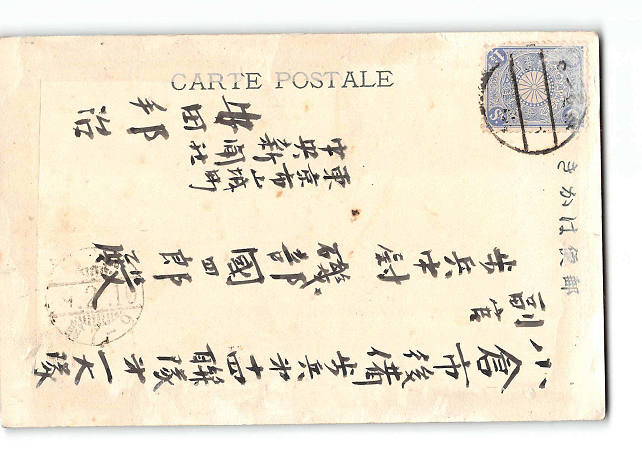 郵便はかき
CARTE POSTALE
小倉市後備歩兵第十四聯隊第一大隊
副官
歩兵中尉 磯部國四郎殿
東京市山城町
中央新聞社
田邦治